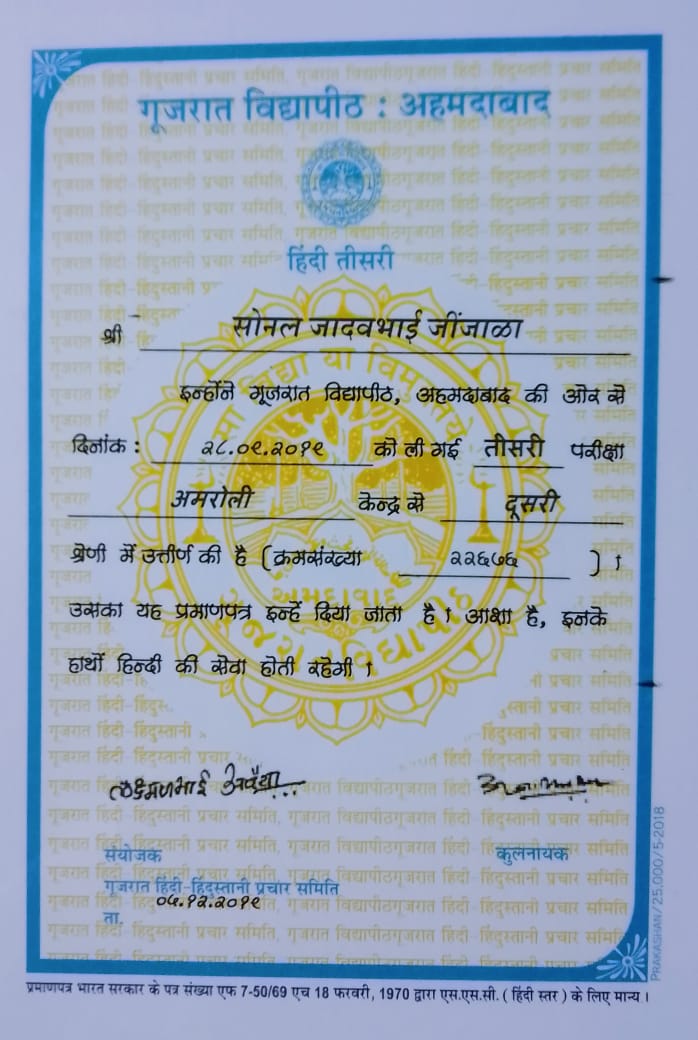 गूजरात विद्यापीठ : अहमदाबाद
हिंदी तीसरी
श्री सोनल जादवभाई जींजाळा
इन्होंने गूजरात विद्यापीठ, अहमदाबाद की ओर से
दिनांक : २८.०९.२०१९ को ली गई तीसरी परीक्षा
अमरोली केन्द्र से दूसरी
श्रेणी में उत्तीर्ण की है (क्रमसंख्या २२६७६ ) ।
उसका यह प्रमाणपत्र इन्हें दिया जाता है। आशा है, इनके
हाथों हिन्दी की सेवा होती रहेगी ।
संयोजक
कुलनायक
गूजरात हिंदी-हिंदुस्तानी प्रचार समिति
ता. ०५.१२.२०१९
PRAKASHAN/25,000/5-2018
प्रमाणपत्र भारत सरकार के पत्र संख्या एफ 7-50/69 एच 18 फरवरी, 1970 द्वारा एस.एस.सी. ( हिंदी स्तर ) के लिए मान्य ।